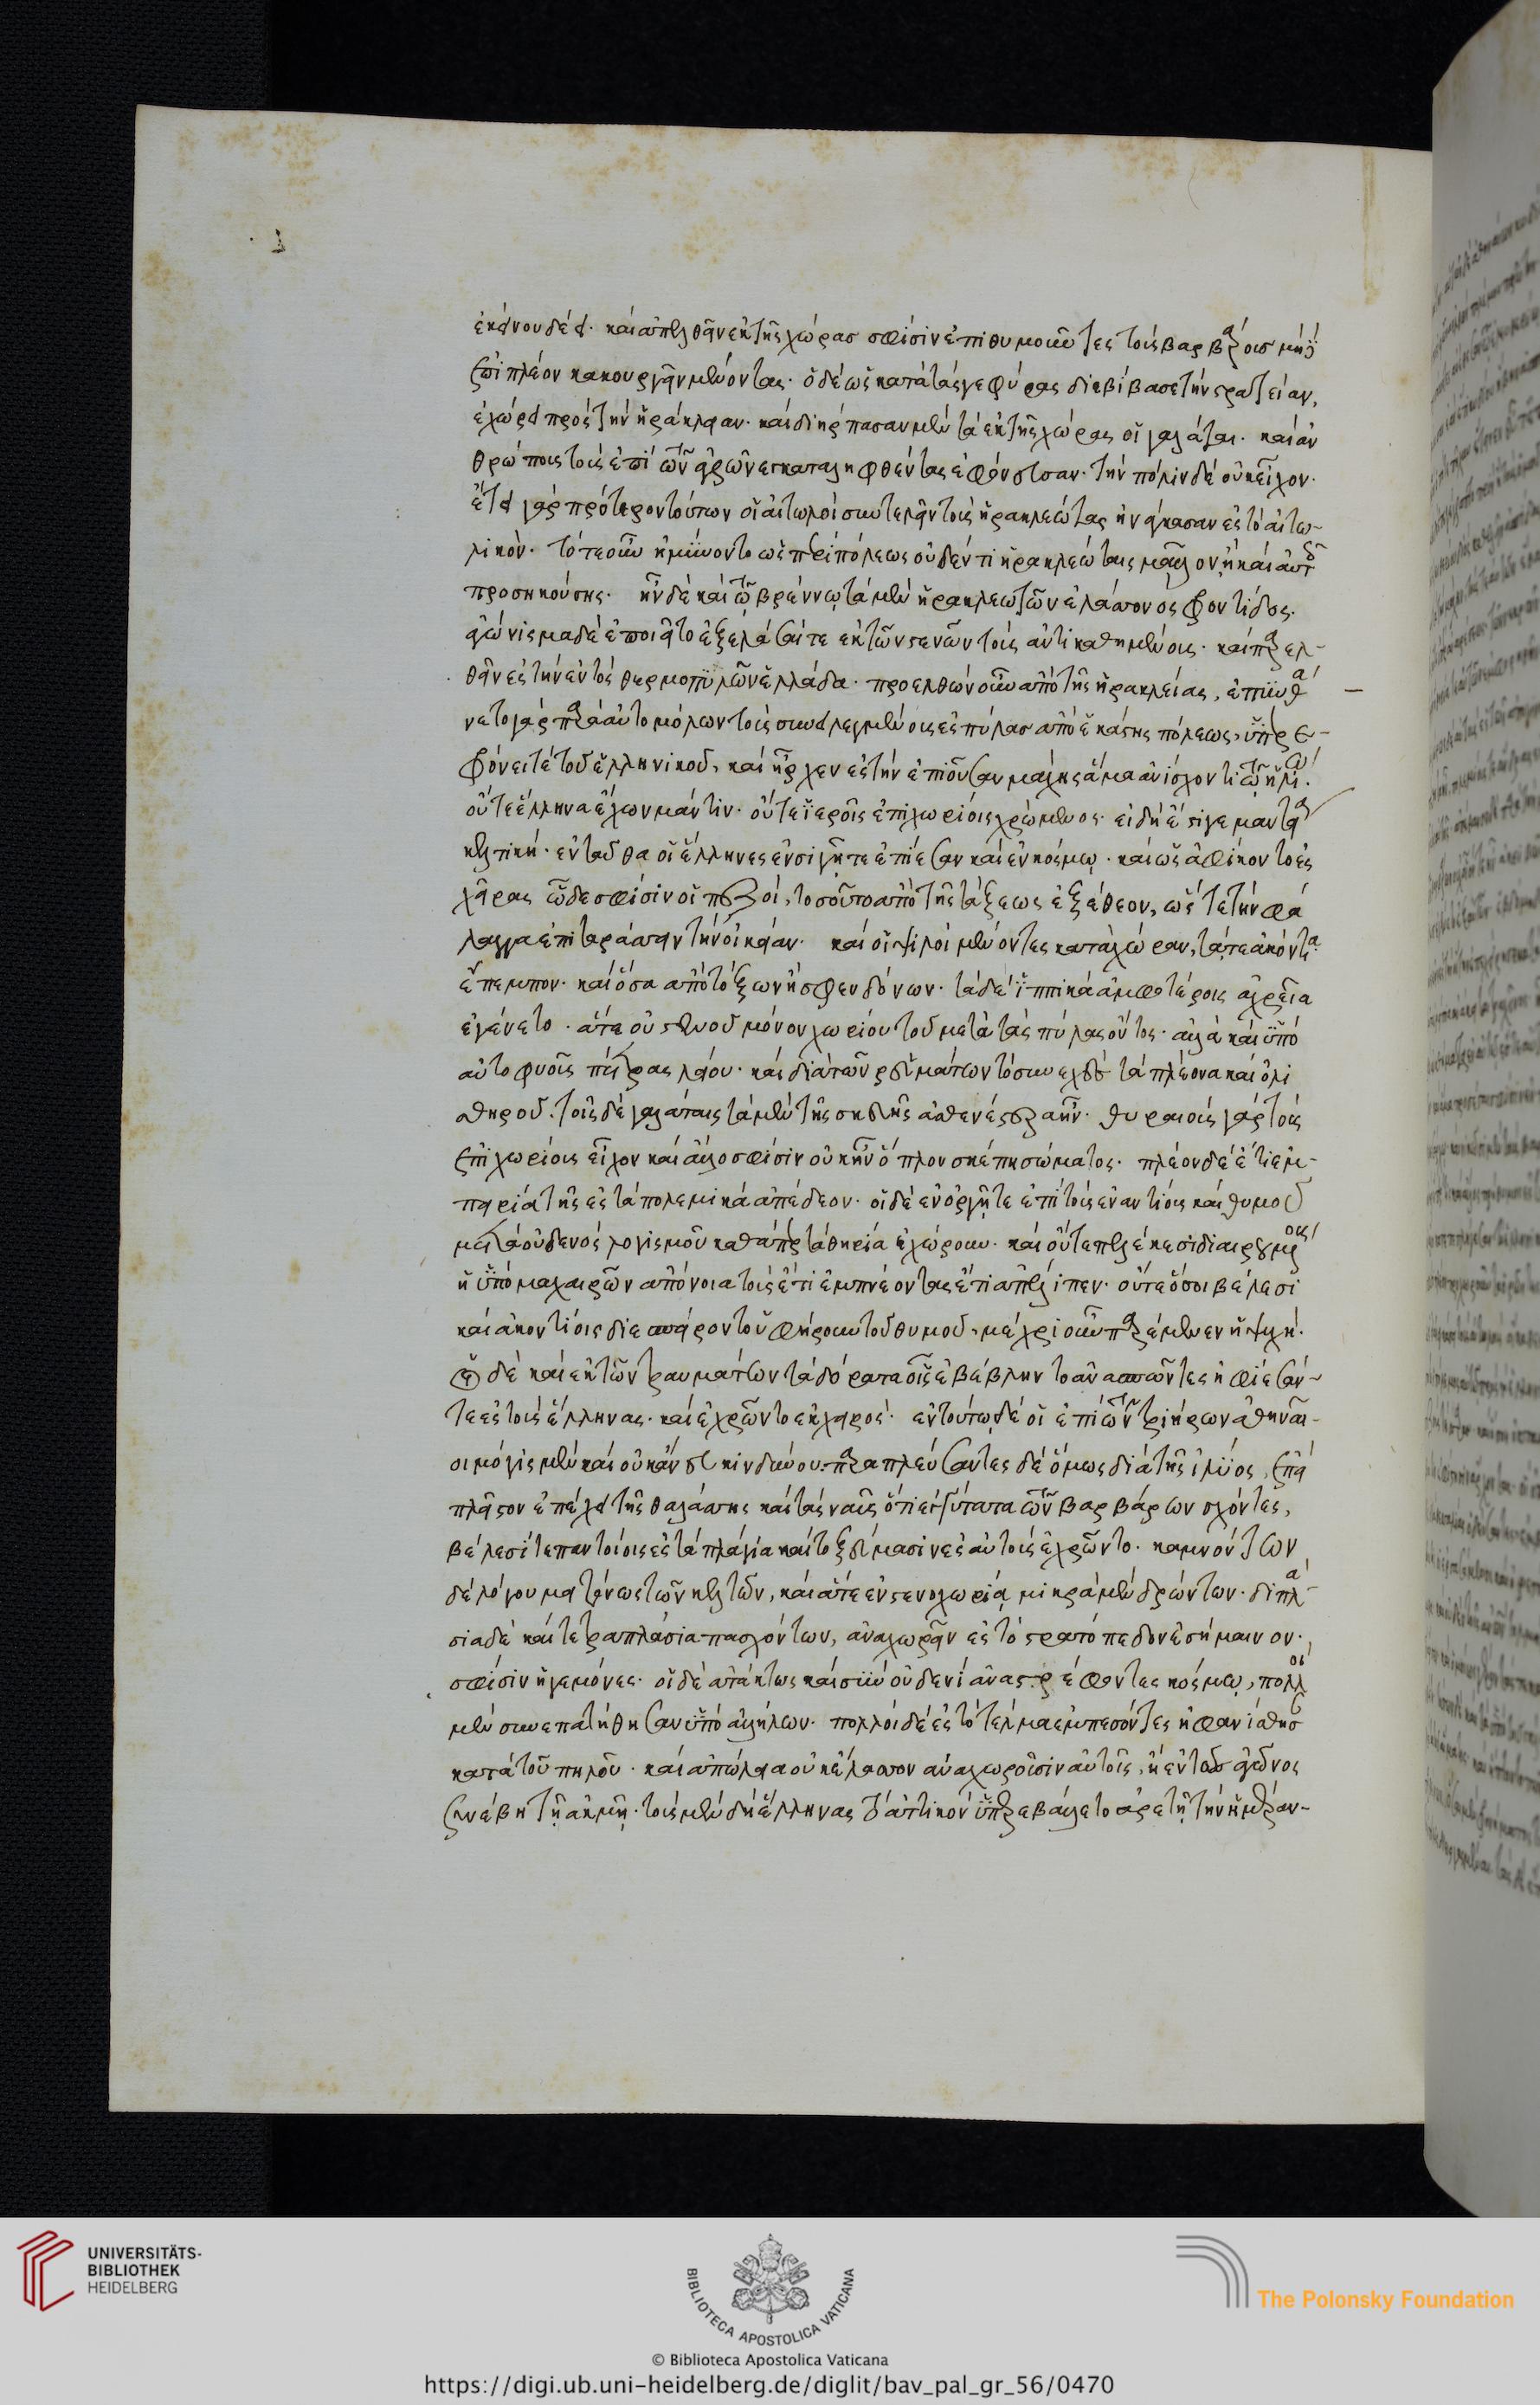 ἐκείνου δέει. καὶ ἀπελθεῖν ἐκ τῆς χώρας σφίσιν ἐπιθυμοῦντες τοὺς βαρβάρους μηδὲ
ἐπὶ πλέον κακουργεῖν μένοντας. ὁ δὲ ὡς κατὰ τὰς γεφύρας διεβίβασε τὴν στρατείαν,
ἐχώρει πρὸς τὴν ἡράκλειαν. καὶ διήρπασαν μὲν τὰ ἐκ τῆς χώρας οἱ γαλάται. καὶ ἀν
θρώπους τοὺς ἐπὶ τῶν ἀγρῶν ἐγκαταληφθέντας ἐφόνευσαν. τὴν πόλιν δὲ οὐχ εἷλον.
ἔτει γὰρ πρότερον τούτων οἱ αἰτωλοὶ συντελεῖν τοὺς ἡρακλεώτας ἠνάγκασαν ἐς τὸ αἰτω-
λικόν. τότε οὖν ἠμύνοντο ὡς περὶ πόλεως οὐδέν τι ἡρακλεώταις μᾶλλον ἢ καὶ αὐτοῖς
προσηκούσης. ἦν δὲ καὶ τῷ βρέννῳ τὰ μὲν ἡρακλεωτῶν ἐλάσσονος φροντίδος.
ἀγώνισμα δὲ ἐποιεῖτο ἐξελάσαι τε ἐκ τῶν στενῶν τοὺς ἀντικαθημένους. καὶ παρελ-
θεῖν ἐς τὴν ἐντὸς θερμοπυλῶν ἑλλάδα. προελθὼν οὖν ἀπὸ τῆς ἡρακλείας, ἐπυνθά
νετο γὰρ παρὰ αὐτομόλων τοὺς συνειλεγμένους ἐς πύλας ἀπὸ ἑκάστης πόλεως, ὑπερε-
φρόνει τε τοῦ ἑλληνικοῦ, καὶ ἦρχεν ἐς τὴν ἐπιοῦσαν μάχης ἅμα ἀνίσχοντι τῷ ἡλίῳ.
οὔτε ἕλληνα ἔχων μάντιν. οὔτε ἱεροῖς ἐπιχωρίοις χρώμενος. εἰ δὴ ἔστι γε μαντεία
κελτική. ἐνταῦθα οἱ ἕλληνες ἐν σιγῇ τε ἐπῄεσαν καὶ ἐν κόσμῳ. καὶ ὡς ἀφίκοντο ἐς
χεῖρας ὧδε σφίσιν οἱ πεζοὶ, τοσοῦτο ἀπὸ τῆς τάξεως ἐξέθεον, ὥστε τὴν φά
λαγγα ἐπιταράσσειν τὴν οἰκείαν. καὶ οἱ ψιλοὶ μένοντες κατὰ χώραν, τά τε ἀκόντια
ἔπεμπον. καὶ ὅσα ἀπὸ τόξων ἢ σφενδόνων. τὰ δὲ ἱππικὰ ἀμφοτέροις ἀχρεῖα
ἐγένετο. ἅτε οὐ στενοῦ μόνον χωρίου τοῦ μετὰ τὰς πύλας ὄντος. ἀλλὰ καὶ ὑπὸ
αὐτοφυοῦς πέτρας λείου. καὶ διὰ τῶν ῥευμάτων τὸ συνεχὲς τὰ πλέονα καὶ ὀλι
σθηροῦ. τοῖς δὲ γαλάταις τὰ μὲν τῆς σκευῆς ἀσθενέστερα ἦν. θυρεοὺς γὰρ τοὺς
ἐπιχωρίους εἶχον καὶ ἄλλο σφίσιν οὐκ ἦν ὅπλον σκέπη σώματος. πλέον δὲ ἔτι ἐμ-
πειρίᾳ τῆς ἐς τὰ πολεμικὰ ἀπέδεον. οἱ δὲ ἐν ὀργῇ τε ἐπὶ τοὺς ἐναντίους καὶ θυμοῦ
μετὰ οὐδενὸς λογισμοῦ καθάπερ τὰ θηρία ἐχώρουν. καὶ οὔτε πελέκεσι διαιρουμένους
ἢ ὑπὸ μαχαιρῶν ἀπόνοια τοὺς ἔτι ἐμπνέοντας ἔτι ἀπέλιπεν. οὔτε ὅσοι βέλεσι
καὶ ἀκοντίοις διεπείροντο ὑφῄρουν τοῦ θυμοῦ. μέχρι οὖν παρέμενεν ἡ ψυχή.
οἱ δὲ καὶ ἐκ τῶν τραυμάτων τὰ δόρατα οἷς ἐβέβληντο ἀνασπῶντες ἠφίεσάν-
τε ἐς τοὺς ἕλληνας. καὶ ἐχρῶντο ἐκ χειρός. ἐν τούτῳ δὲ οἱ ἐπὶ τῶν τριήρων ἀθηναῖ-
οι μόγις μὲν καὶ οὐκ ἄνευ κινδύνου. παραπλεύσαντες δὲ ὅμως διὰ τῆς ἰλύος, ἐπὶ
πλεῖστον ἐπέχει τῆς θαλάσσης καὶ τὰς ναῦς ὅτι ἐγγύτατα τῶν βαρβάρων σχόντες,
βέλεσί τε παντοίοις ἐς τὰ πλάγια καὶ τοξεύμασιν ἐς αὐτοὺς ἐχρῶντο. καμνόντων
δὲ λόγου μειζόνως τῶν κελτῶν, καὶ ἅτε ἐν στενοχωρίᾳ μικρὰ μὲν δρώντων. διπλά-
σια δὲ καὶ τετραπλάσια πασχόντων, ἀναχωρεῖν ἐς τὸ στρατόπεδον ἐσήμαινον.
σφίσιν ἡγεμόνες. οἱ δὲ ἀτάκτως καὶ σὺν οὐδενὶ ἀναστρέφοντες κόσμῳ, πολλοὶ
μὲν συνεπατήθησαν ὑπὸ ἀλλήλων. πολλοὶ δὲ ἐς τὸ τέλμα ἐμπεσόντες ἠφανίσθησαν
κατὰ τοῦ πηλοῦ. καὶ ἀπώλεια οὐκ ἐλάσσον ἀναχωροῦσιν αὐτοῖς, ἢ ἐν τοῦ ἀγῶνος
συνέβη τῇ ἀκμῇ. τοὺς μὲν δὴ ἕλληνας τὸ ἀττικὸν ὑπερεβάλλετο ἀρετῇ τὴν ἡμέραν-
UNIVERSITÄTS-
BIBLIOTHEK
HEIDELBERG
BIBLIOTECA APOSTOLICA VATICANA
The Polonsky Foundation
© Biblioteca Apostolica Vaticana
https://digi.ub.uni-heidelberg.de/diglit/bav_pal_gr_56/0470